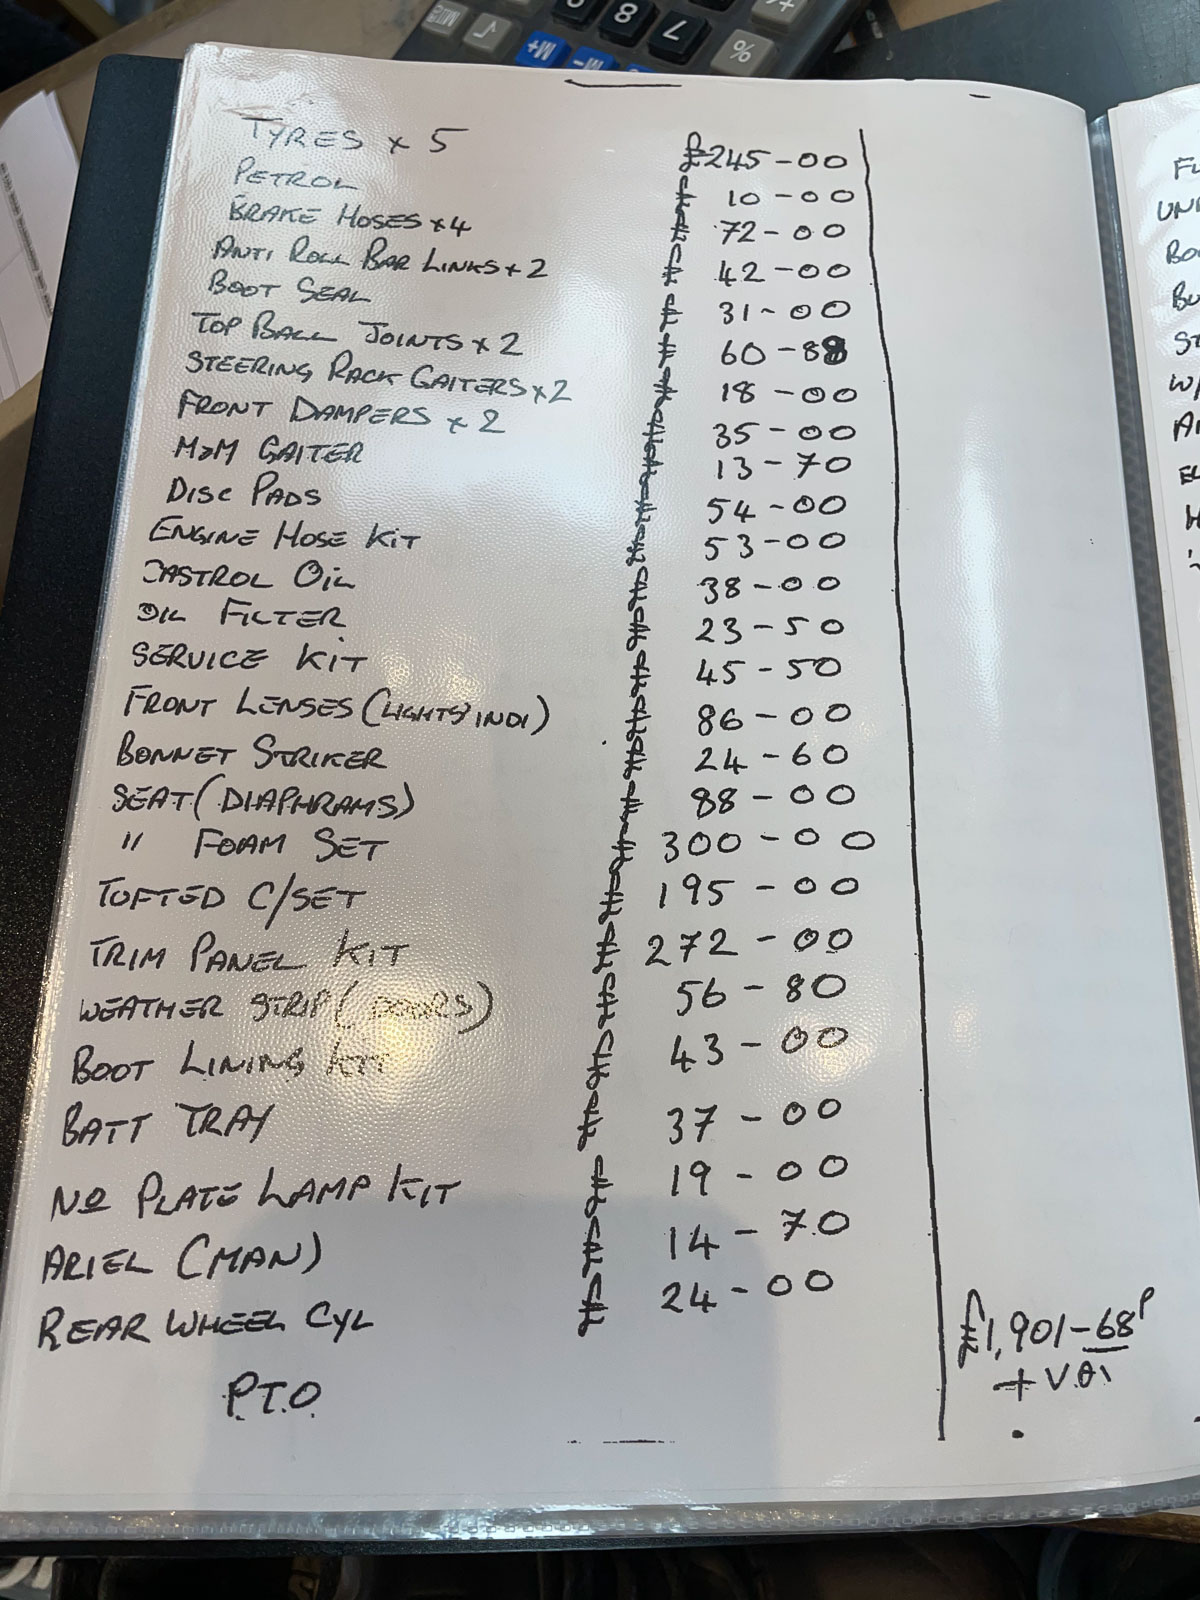 TYRES x 5 £245-00
PETROL £ 10-00
BRAKE HOSES x4 £ 72-00
ANTI ROLL BAR LINKS x 2 £ 42-00
BOOT SEAL £ 31-00
TOP BALL JOINTS x 2 £ 60-88
STEERING RACK GAITERS x2 £ 18-00
FRONT DAMPERS x 2 £ 35-00
GAITER £ 13-70
DISC PADS £ 54-00
ENGINE HOSE KIT £ 53-00
CASTROL OIL £ 38-00
OIL FILTER £ 23-50
SERVICE KIT £ 45-50
FRONT LENSES (LIGHTS' INDI) £ 86-00
BONNET STRIKER £ 24-60
SEAT (DIAPHRAMS) £ 88-00
" FOAM SET £ 300-00
TOFTED C/SET £ 195-00
TRIM PANEL KIT £ 272-00
WEATHER STRIP (DOORS) £ 56-80
BOOT LINING KIT £ 43-00
BATT TRAY £ 37-00
NO PLATE LAMP KIT £ 19-00
ARIEL (MAN) £ 14-70
REAR WHEEL CYL £ 24-00
£1,901-68P
+ V.A.T
P.T.O.
% 7 8 √ M+ M- MU